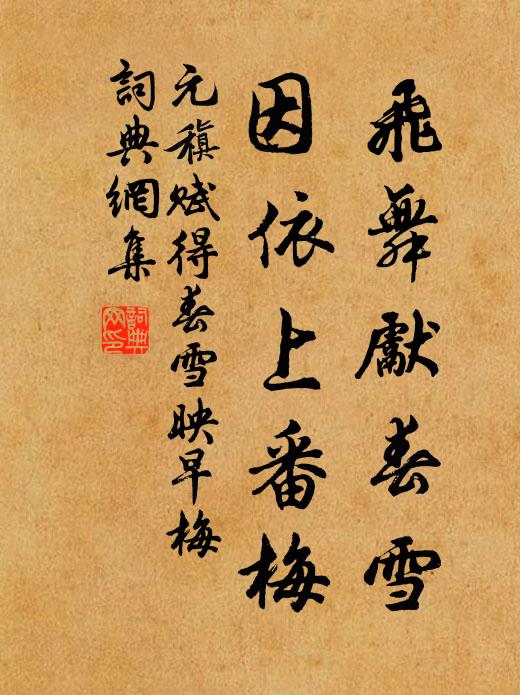 飛舞獻春雪
因依上番梅
元稹賦得春雪映早梅
詞典網集
詞典网印